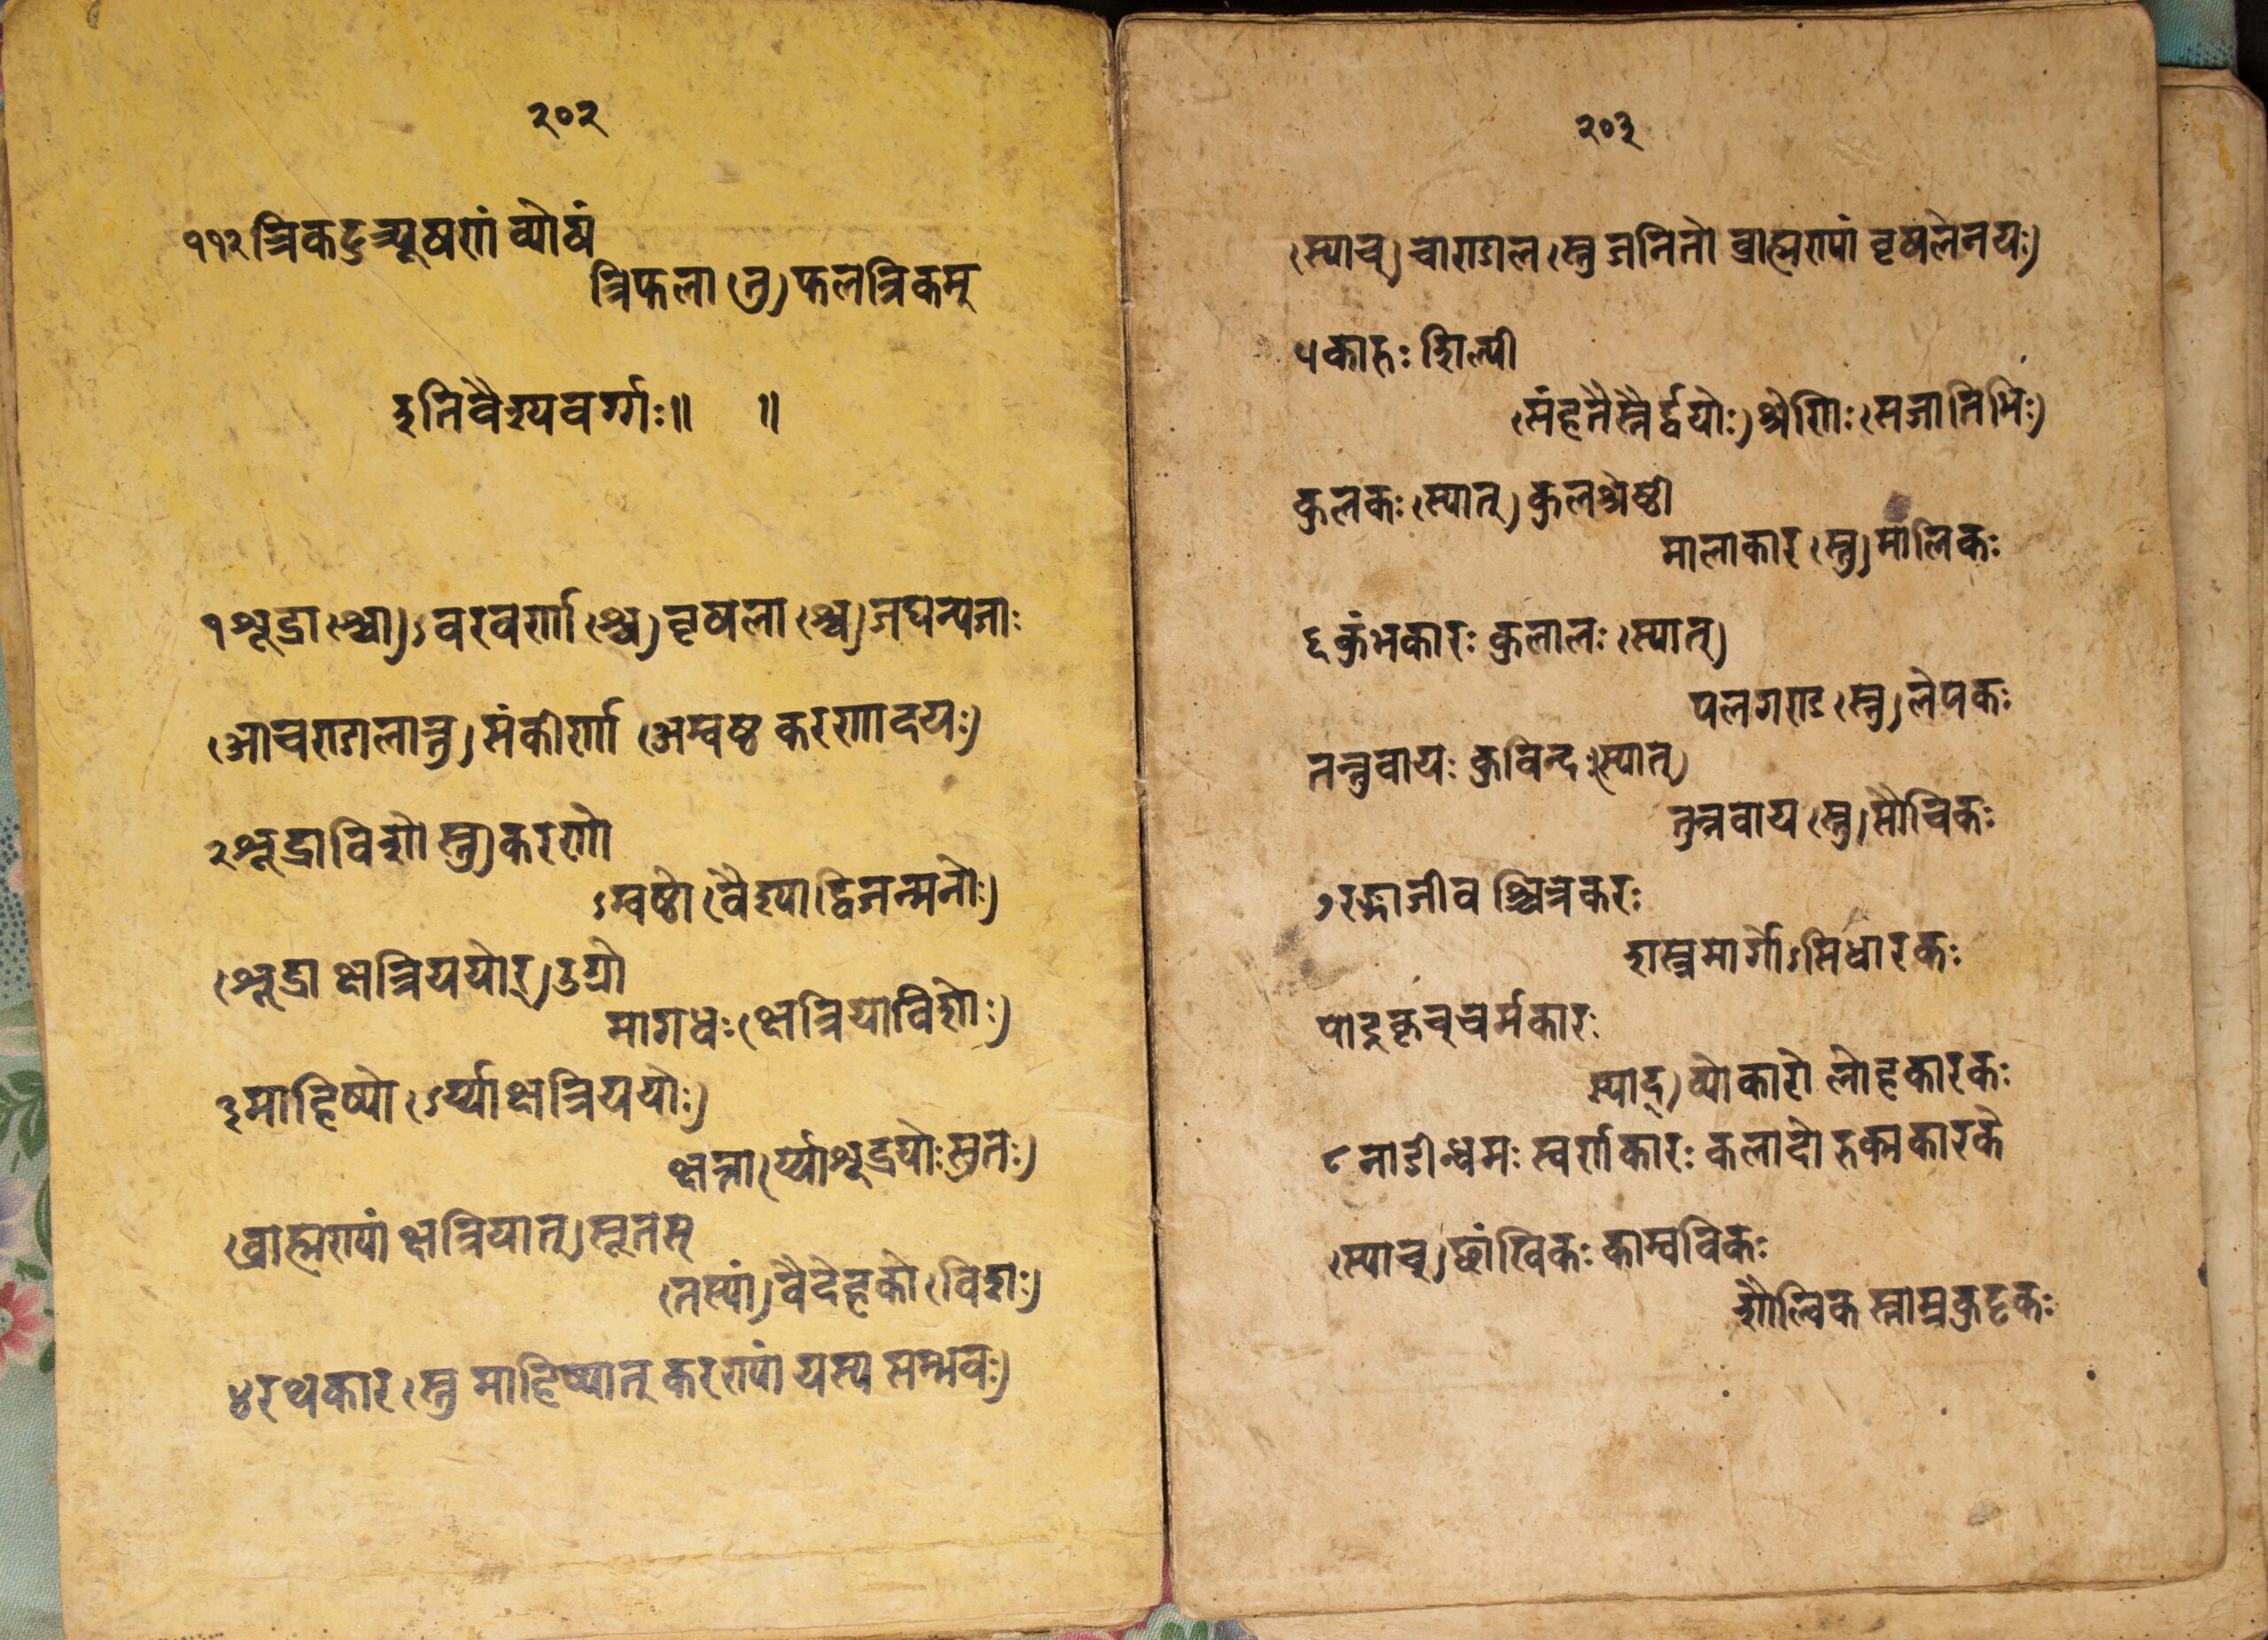 २०२
११२ त्रिकटु त्र्यूषणं व्योषं
त्रिफला (तु) फलत्रिकम्
इति वैश्यवर्ग्गः॥ ॥
१ शूद्रा (श्चा)ऽवरवर्णा (श्च) वृषला (श्च) जघन्यजाः
(आचण्डालात्तु) संकीर्णा (अम्बष्ठ करणादयः)
२ शूद्राविशो (स्तु) करणो
ऽम्बष्ठो (वैश्याद्विजन्मनोः)
(शूद्राक्षत्रिययोर्) उग्रो
मागधः (क्षत्रियाविशोः)
३ माहिष्यो (ऽर्य्याक्षत्रिययोः)
क्षत्ता (र्य्याशूद्रयोः सुतः)
(ब्राह्मण्यां क्षत्रियात्) सूतस्
(तस्यां) वैदेहको (विशः)
४ रथकार (स्तु माहिष्यात् करण्यां यस्य सम्भवः)
२०३
(स्याच्) चाण्डाल (स्तु जनितो ब्राह्मण्यां वृषलेन यः)
५ कारुः शिल्पी
(संहतैस्तैर्द्वयोः) श्रेणिः (सजातिभिः)
कुलकः (स्यात्) कुलश्रेष्ठी
मालाकार (स्तु) मालिकः
६ कुंभकारः कुलालः (स्यात्)
पलगण्ड (स्तु) लेपकः
तन्तुवायः कुविन्दः (स्यात्)
तुन्नवाय (स्तु) सौचिकः
७ रङ्गाजीव श्चित्रकरः
शस्त्रमार्गोऽसिधारकः
पादुकृच् चर्मकारः
(स्याद्) व्योकारो लोहकारकः
८ नाडीन्धमः स्वर्णकारः कलादो रुक्मकारके
(स्याच्) छांखिकः काम्बविकः
शौल्विक स्ताम्रकुट्टकः